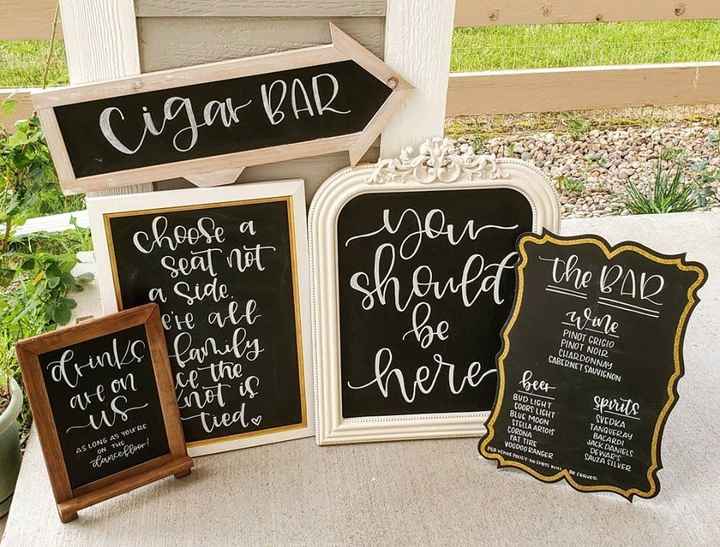 Cigar BAR
Choose a
seat not
a side.
we're all
family
once the
knot is
tied
drinks
are on
us
AS LONG AS YOU'RE
ON THE
dancefloor!
you
should
be
here
the BAR
wine
PINOT GRIGIO
PINOT NOIR
CHARDONNAY
CABERNET SAUVIGNON
beer
BUD LIGHT
COORS LIGHT
BLUE MOON
STELLA ARTOIS
CORONA
FAT TIRE
VOODOO RANGER
spirits
SVEDKA
TANQUERAY
BACARDI
JACK DANIELS
DEWAR'S
SAUZA SILVER
PER VENUE POLICY NO SHOTS WILL BE SERVED.